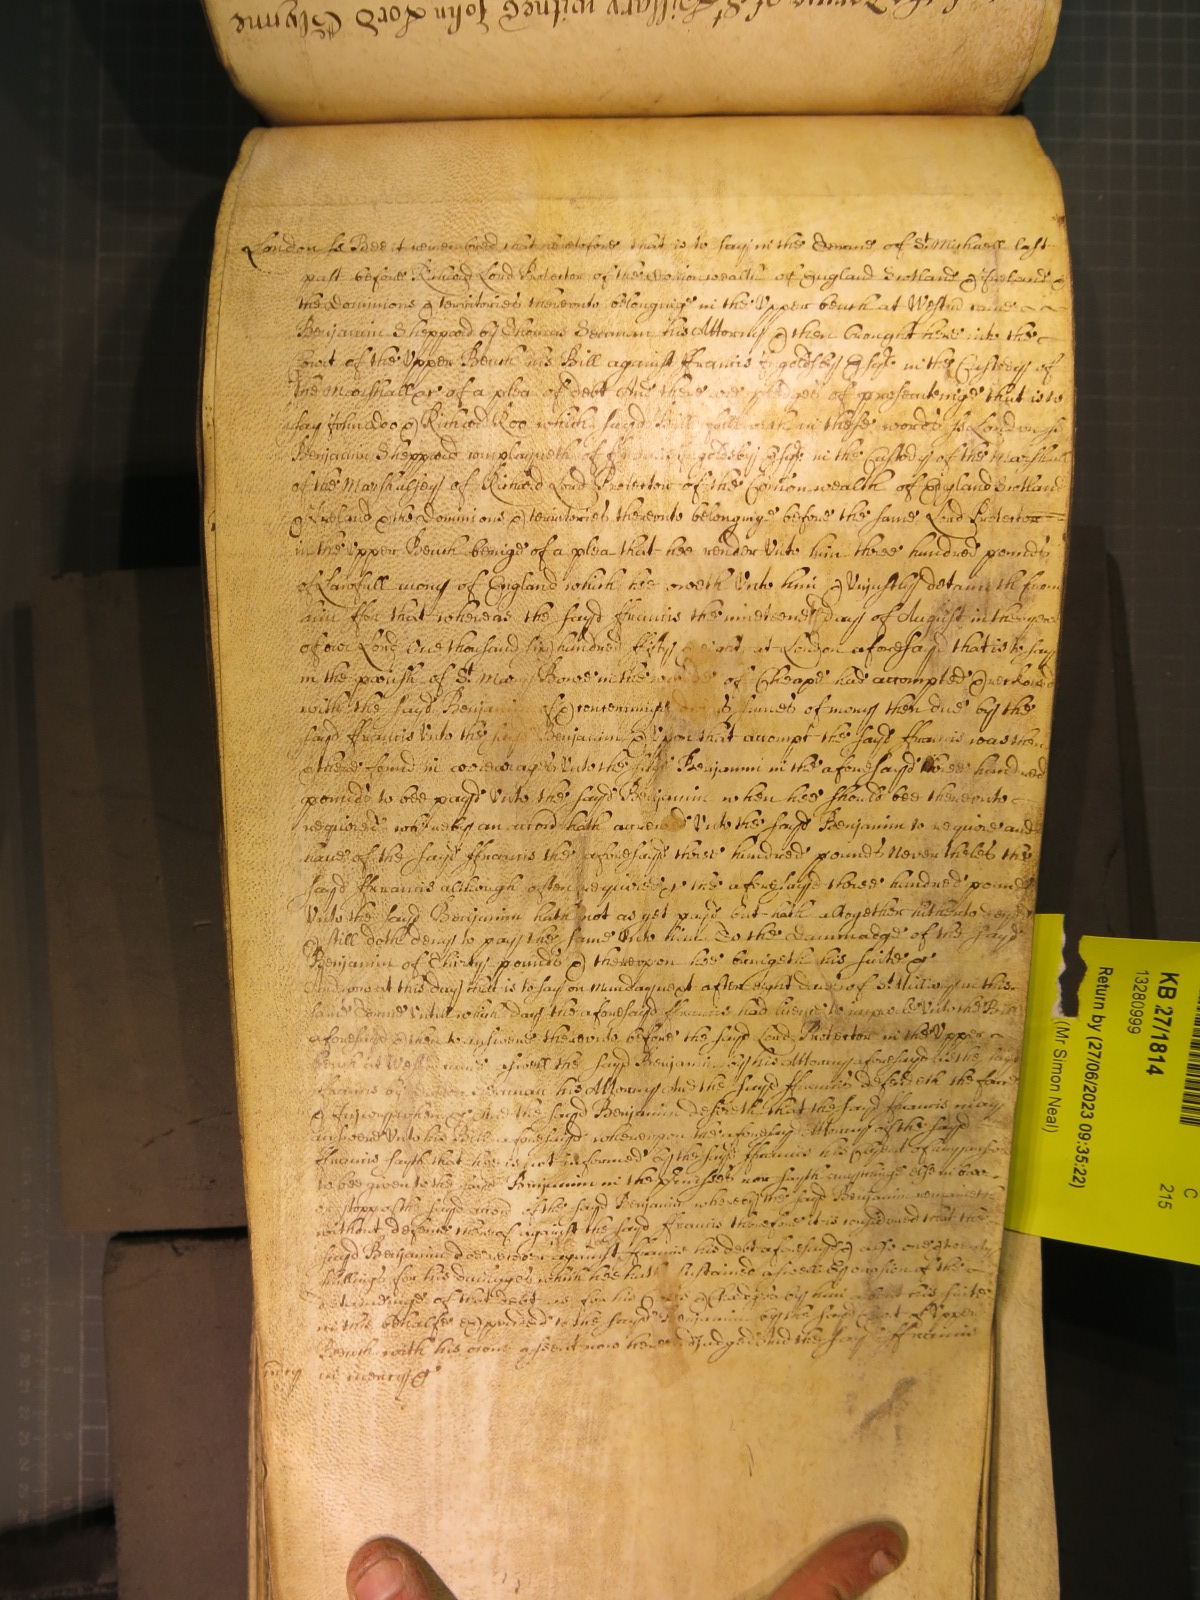 Terme of St Hillary witnes John Lord Glynne
London ss Bee it remembred that heretofore that is to say in the Terme of St Michaell last
past before Richard Lord Protector of the Comonwealth of England Scotland & Ireland &
the Dominions & territories thereunto belonginge in the Upper bench at Westm came
Benjamin Sheppard by Thomas Seaman his Attorny & then brought here into the
Court of the Upper Bench his Bill against Francis Ingoldsby Esqr in the Custody of
the Marshall &c of a plea of debt And there are pledges of prosecutinge that is to
say John Doo & Richard Roo which sayd Bill followeth in these words ss London ss
Benjamin Sheppard complayneth of Francis Ingoldsby Esqr in the Custody of the Marshall
of the Marshalsey of Richard Lord Protector of the Comonwealth of England Scotland
& Ireland & the Dominions & territories thereunto belonginge before the same Lord Protector
in the Upper Bench beinge of a plea that hee render unto him three hundred pounds
of Lawfull mony of England which hee oweth unto him & Uniustly detaineth from
him ffor that whereas the sayd Francis the nineteenth day of August in the yeare
of our Lord One thousand six hundred fifty & eight at London aforesayd that is to say
in the parish of St Mary Bowe in the warde of Cheape had accompted & reckoned
with the sayd Benjamin of & concerninge sumes of mony then due by the
sayd Francis unto the sayd Benjamin & Upon that accompt the sayd Francis was then
& there found in arrerages Unto the sayd Benjamin in the aforesayd three hundred
pounds to bee payd Unto the sayd Benjamin when hee should bee thereunto
required whereby an accion hath accrewed Unto the sayd Benjamin to require and
have of the sayd Francis the aforesayd three hundred pounds Neverthelesse the
sayd Francis although often required &c the aforesayd three hundred pounds
Unto the sayd Benjamin hath not as yet payd but hath altogether hitherto denyed
& still doth deny to pay the same Unto him To the dammadge of the sayd
Benjamin of Thirty pounds & thereupon hee bringeth his suite &c
And now at this day that is to say on Munday next after eight dayes of St Hillary in this
same Terme Untill which day the aforesayd Francis had licence to imparle Unto the Bill
aforesayd & then to answere thereunto before the sayd Lord Protector in the Upper
bench at Westm came aswell the sayd Benjamin by his Attorny aforesayd as the sayd
Francis by his Attorny And the sayd Francis defendeth the force
& Iniury when &c And the sayd Benjamin desireth that the sayd Francis may
answere Unto his Bill aforesayd whereupon the aforesayd Attorny of the sayd
Francis sayth that hee is not informed by the sayd Francis his Clyent of any answere
to bee given to the sayd Benjamin in the premisses nor sayth anythinge else in barr
or stopp of the sayd accion of the sayd Benjamin whereby the sayd Benjamin remaineth
without defence thereof against the sayd Francis therefore it is considered that the
sayd Benjamin doe recover against Francis his debt aforesayd & also one & twenty
shillings for his damages which hee hath sustained aswell by occasion of the
detaininge of that debt as for his Costs & Charges by him about his suite
in this behalfe expended to the sayd Benjamin by the sayd Court of Upper
Bench with his owne assent now here adiudged And the sayd Francis
mercy in mercy &c
KB 27/1814
13280999
Return by (27/06/2023 09:35:22)
(Mr Simon Neal)
C
215